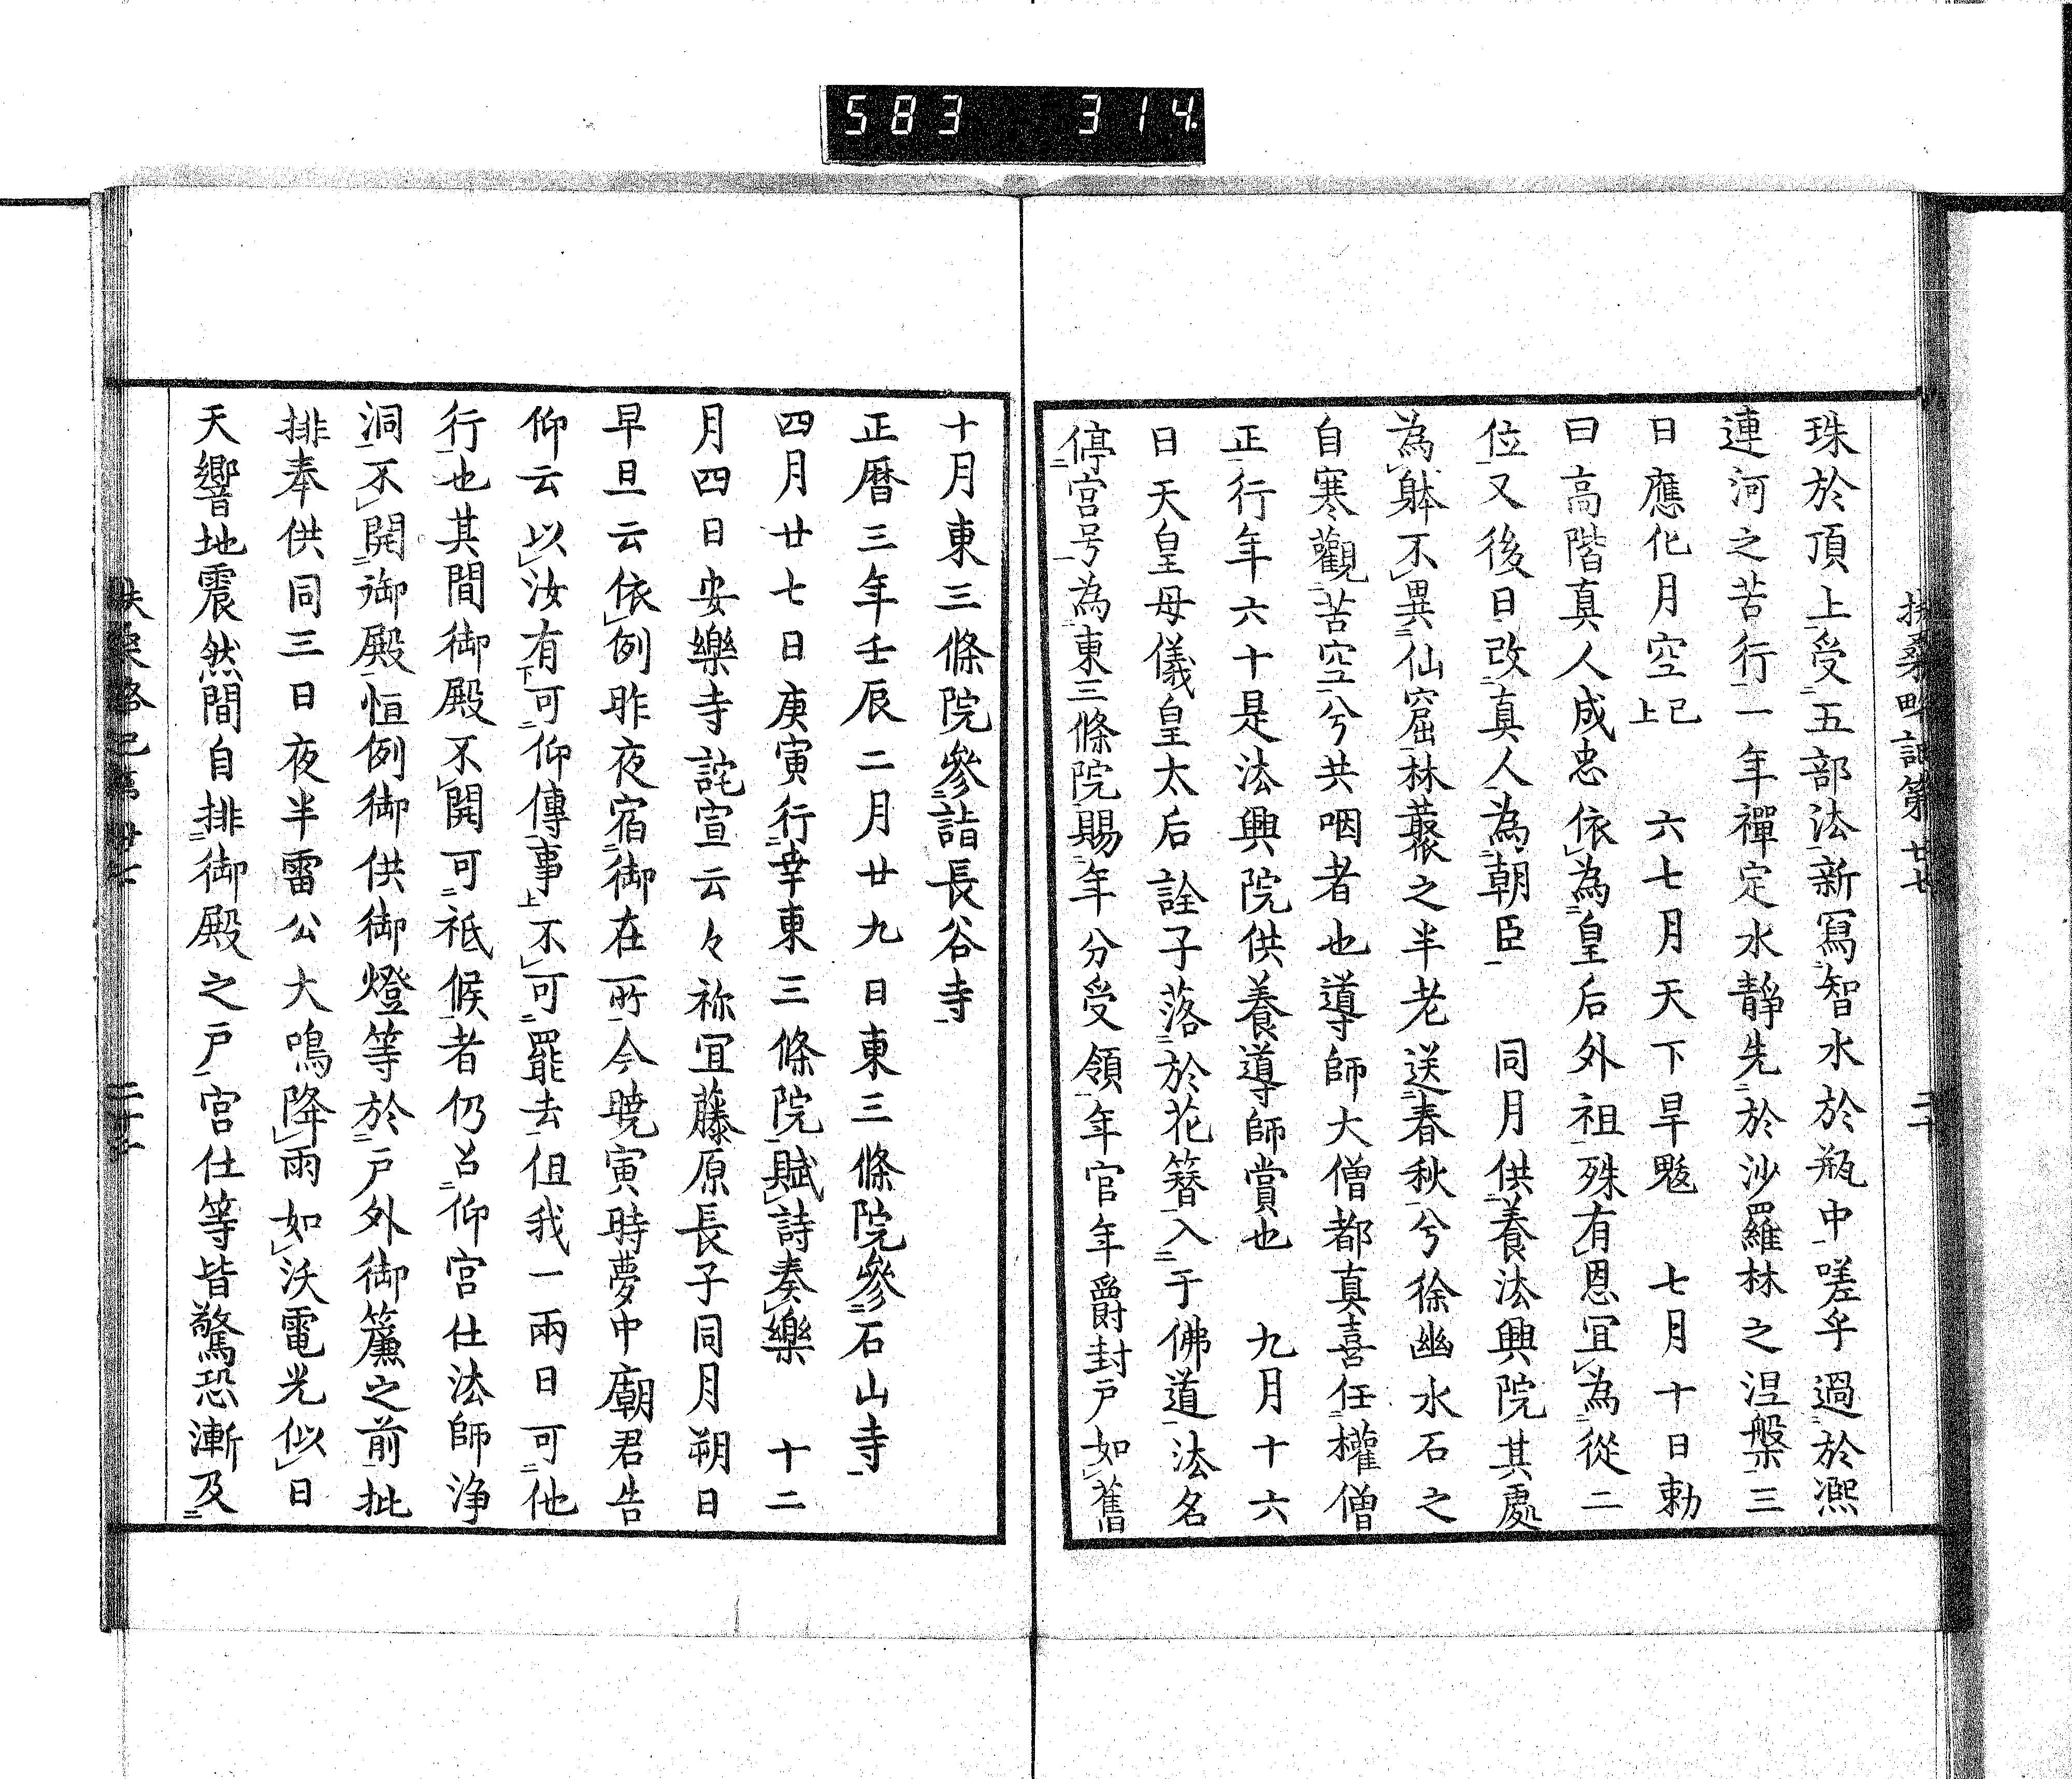 583 314.
扶桑略記第廿七
珠於頂上受五部法新寫智水於瓶中嗟乎過於凞
連河之苦行一年禪定水静先於沙羅林之涅槃三
日應化月空已上 六七月天下旱魃 七月十日勅
曰高階真人成忠依為皇后外祖殊有恩冝為從二
位又後日改真人為朝臣 同月供養法興院其處
為躰不異仙窟林藂之半老送春秋兮徐幽水石之
自寒觀苦空兮共咽者也導師大僧都真喜任權僧
正行年六十是法興院供養導師賞也 九月十六
日天皇母儀皇太后詮子落於花簪入于佛道法名
停宮号為東三條院賜年分受領年官年爵封戸如舊
十月東三條院參詣長谷寺
正暦三年壬辰二月廿九日東三條院參石山寺
四月廿七日庚寅行幸東三條院賦詩奏樂 十二
月四日安樂寺託宣云々祢冝藤原長子同月朔日
早旦云依例昨夜宿御在所今曉寅時夢中廟君告
仰云以汝有可仰傳事不可罷去但我一兩日可他
行也其間御殿不開可祇候者仍召仰宮仕法師浄
洞不開御殿恒例御供御燈等於戸外御簾之前批
排奉供同三日夜半雷公大鳴降雨如沃電光似日
天響地震然間自排御殿之戸宮仕等皆驚恐漸及
扶桑略記第廿七